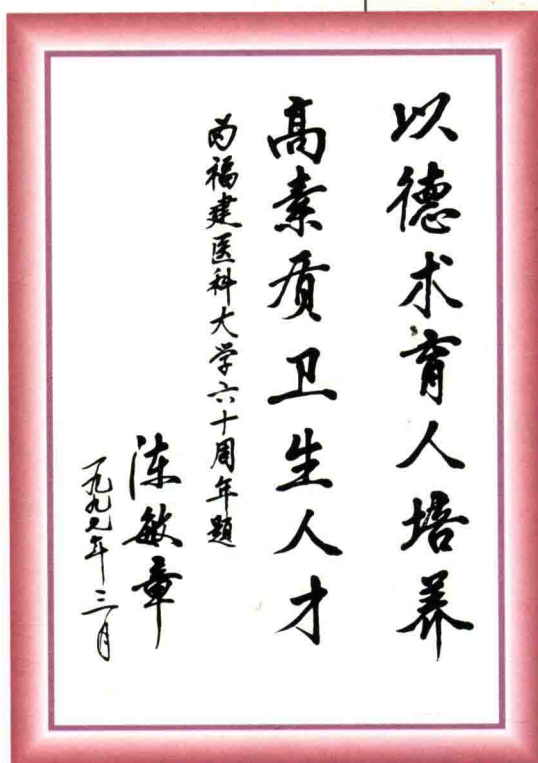 以德术育人培养
高素质卫生人才
为福建医科大学六十周年题
陈敏章
一九九七年三月